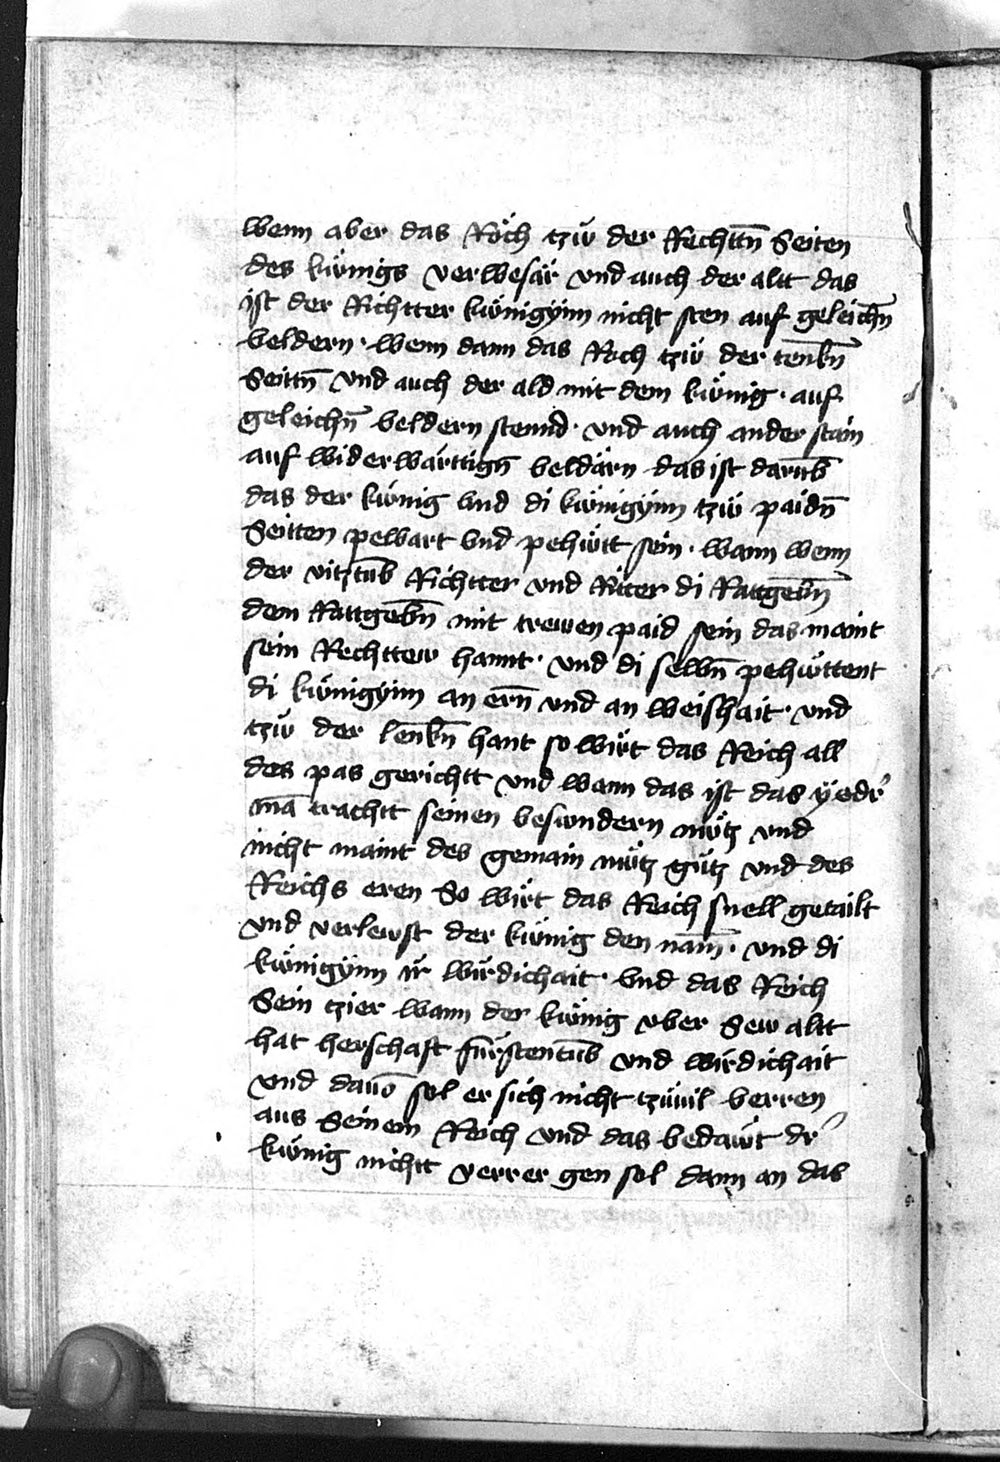 Wenn aber das Röch tzw̋ der Rechttn̄ Seiten
des kw̋nigs verwesär vnd auch der altt das
ist der Richtter kw̋nigẏnn nicht sten auf geleichn̄
veldern · wenn dann das Roch tzw̋ der tenkn̄
Seittn̄ vnd auch der ald mit dem kw̋nig · auf
geleichn̄ veldern stennd · vnd auch ander stain
auf widerwärttign̄ veldärn das ist darūb
das der kw̋nig vnd di kw̋nigẏnn tzw̋ paidn̄
Seitten pewart vnd pehw̋tt sein · wann wenn
der vitztūb Richtter vnd Ritter di Rattgebn̄
dem Rattgebn̄ mit trewen paid sein das maint
sein Rechttew hannt · vnd di selbn̄ pehw̋ttent
di kw̋nigẏnn an ern̄ vnd an weishait · vnd
tzw̋ der lenkn̄ hant so wirt das Reich all
des pas gerichtt vnd wann das ist das ÿedr̛
mā trachtt seinen beswndern nw̋tz vnd
nicht maint des gemain nw̋tz gw̋tz vnd des
Reichs eren So wirt das Reich snell getailt
vnd verlewst der kw̋nig den nam̄ · vnd di
kw̋nigẏnn ir wirdichait · vnd das Reich
Sein tzier wann der kw̋nig vber Sew altt
hat herschaft fürstentūb vnd wirdichait
vnd dauō sol er sich nicht tzüuil verren
aus Seinem Reich vnd das bedawt dr̛
kw̋nig nichtt verrer gen sol dann an das